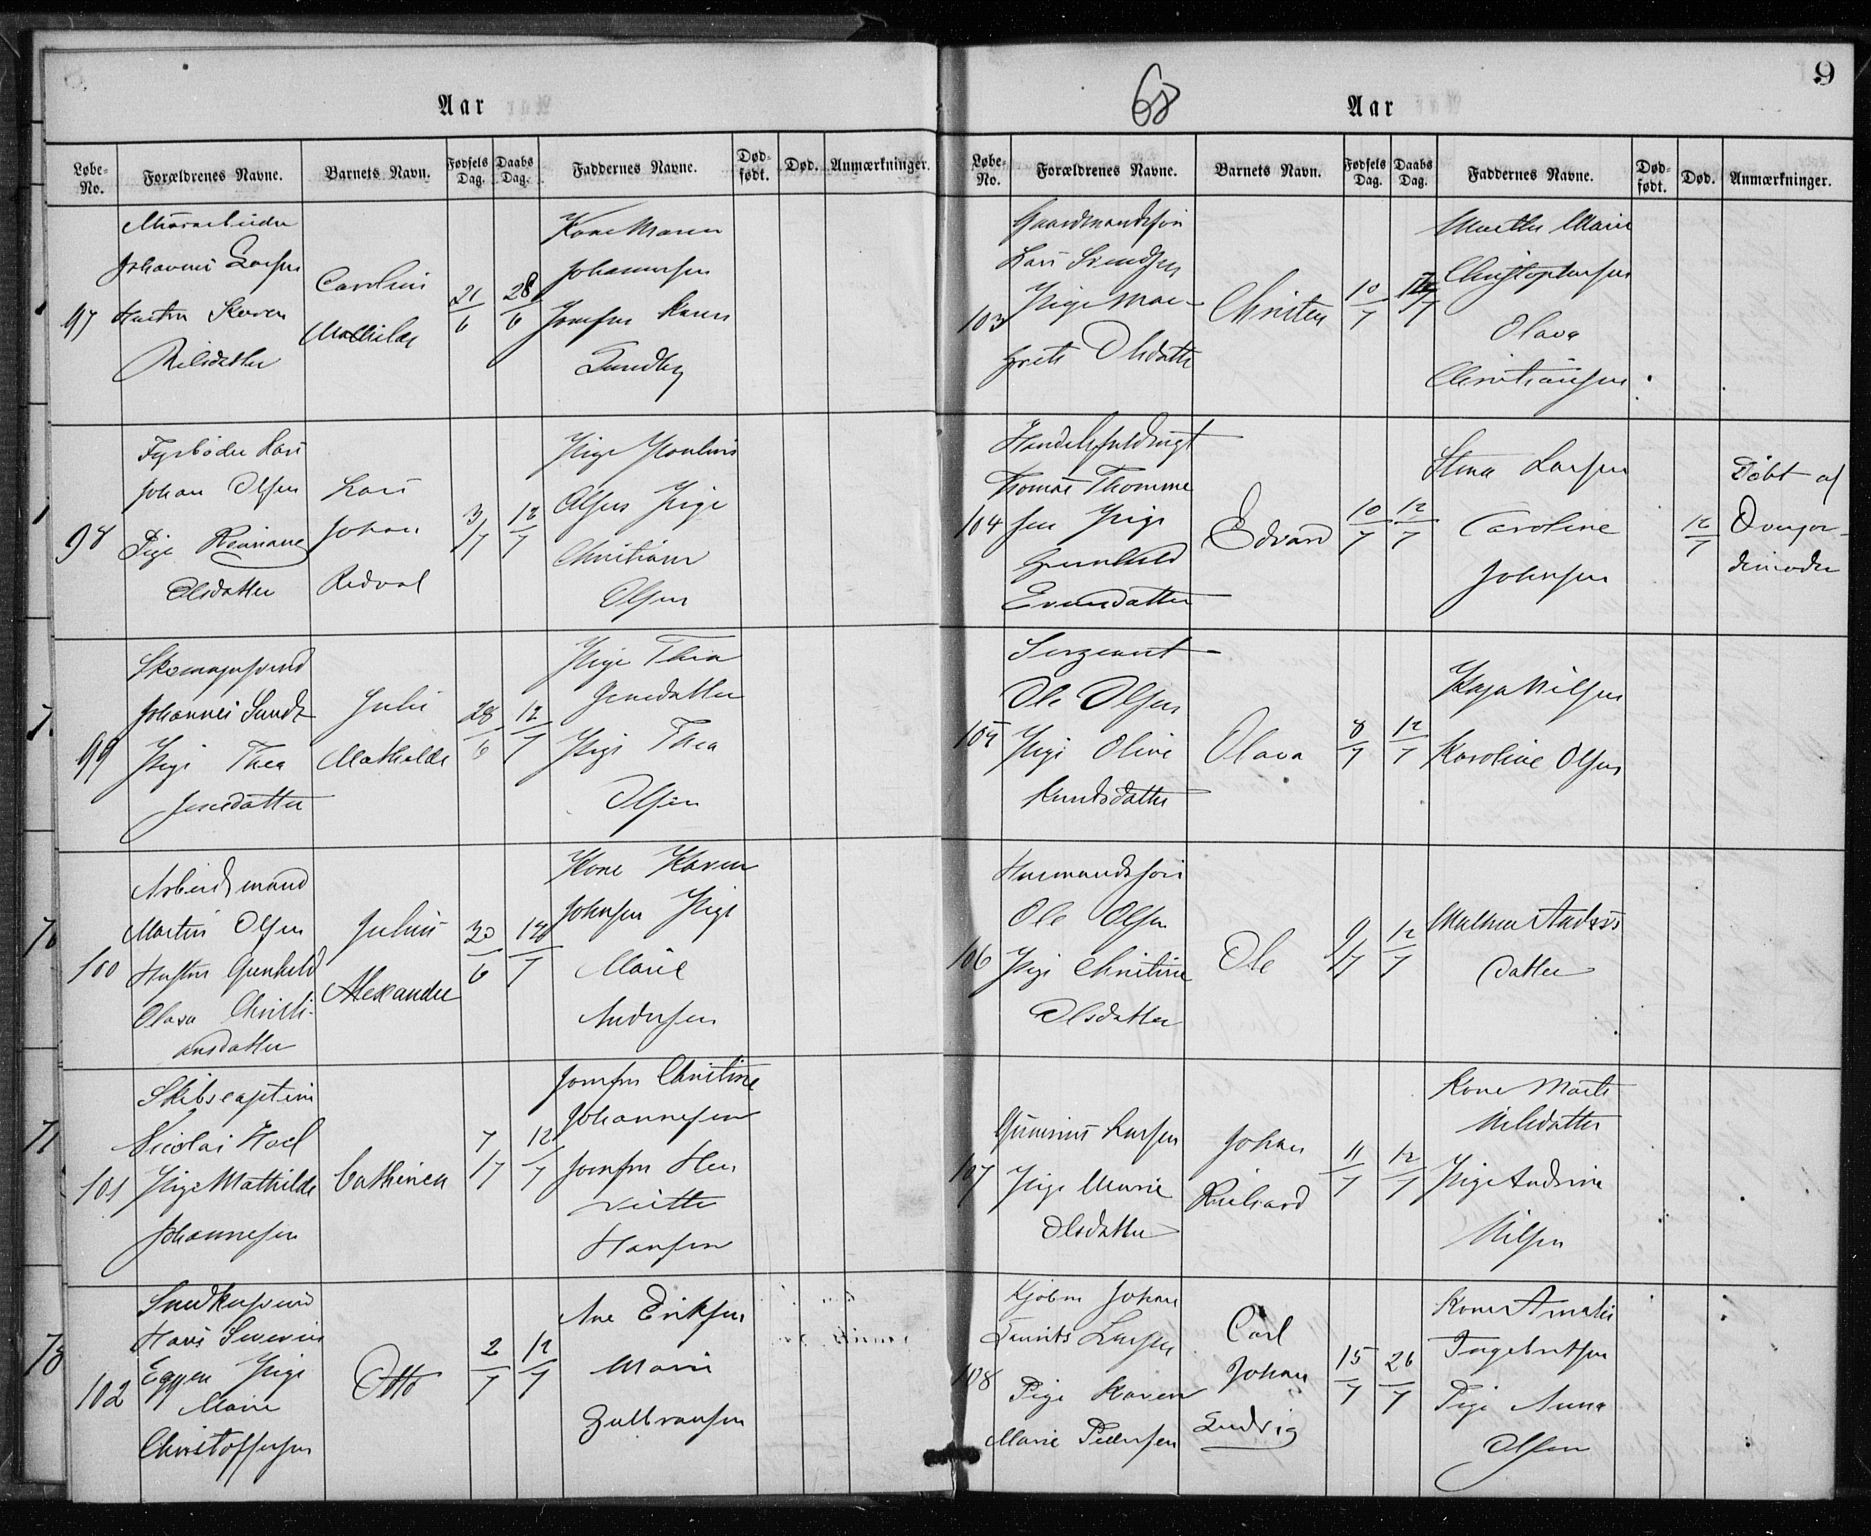 Aar
Løbe-No. Forældrenes Navne. Barnets Navn. Fødsels Dag. Daabs Dag. Faddernes Navne. Død-født. Død. Anmærkninger.
97
Johannes Larsen
Hustru Karen
Nilsdatter
Caroline
Mathilde
21/6
28/6
Kone Maren
Johannesen
Jomfru Karen
Lundby
98
Fyrbøder Lars
Johan Olsen
Pige
Olsdatter
Lars
Johan
Redval
3/7
12/7
Pige Pauline
Olsen Pige
Christiane
Olsen
99
Skomagersvend
Johannes Sund
Pige Thea
Jensdatter
Julie
Mathilde
28/6
12/7
Pige Thea
Jensdatter
Pige Thea
Olsen
100
Arbeidsmand
Martin Olsen
Hustru Gunhild
Olava Christi-
ansdatter
Julius
Alexander
30/6
12/7
Kone Karen
Johnsen Pige
Marie
Andersen
101
Skibscaptein
Nicolai Hoel
Pige Mathilde
Johannesen
Cathinca
7/7
12/7
Jomfru Christine
Johannesen
Jomfru Hen
riette
Hansen
102
Snedkersvend
Hans Severin
Eggen Pige
Marie
Christoffersen
Otto
2/7
12/7
Ane Eriksen
Marie
Gulbransen
9
68
Aar
Løbe-No. Forældrenes Navne. Barnets Navn. Fødsels Dag. Daabs Dag. Faddernes Navne. Død-født. Død. Anmærkninger.
103
Gaardmandssøn
Lars Svendsen
Pige Mar-
grete Olsdatter
Christen
10/7
Marthe Marie
Christophersen
Olava
Christiansen
104
Handelsfuldmægt
Thomas Thomme
sen Pige
Gunhild
Evensdatter
Edvard
10/7
12/7
Stina Larsen
Caroline
Johnsen
12/7
Døbt af
Overjor-
demoder
105
Sergeant
Ole Olsen
Pige Oline
Knudsdatter
Olava
8/7
12/7
Kaja Nilsen
Karoline Olsen
106
Husmandssøn
Ole Olsen
Pige Christine
Olsdatter
Ole
9/7
12/7
Mathea Anders
datter
107
Larsen
Pige Marie
Olsdatter
Johan
Richard
11/7
12/7
Kone Marte
Nilsdatter
Pige Andrine
Nilsen
108
Kjøbm Johan
Laurits Larsen
Pige Karen
Marie Pedersen
Carl
Johan
Ludvig
15/7
26/7
Kone Amalie
Ingebretsen
Pige Anna
Olsen